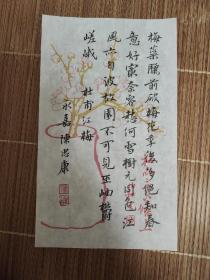 梅蘂臘前破梅花年後多絕知春
意好最奈客愁何雪樹元同色江
風亦自波故園不可見巫岫鬱
嵯峨
杜甫江梅
永嘉陳康